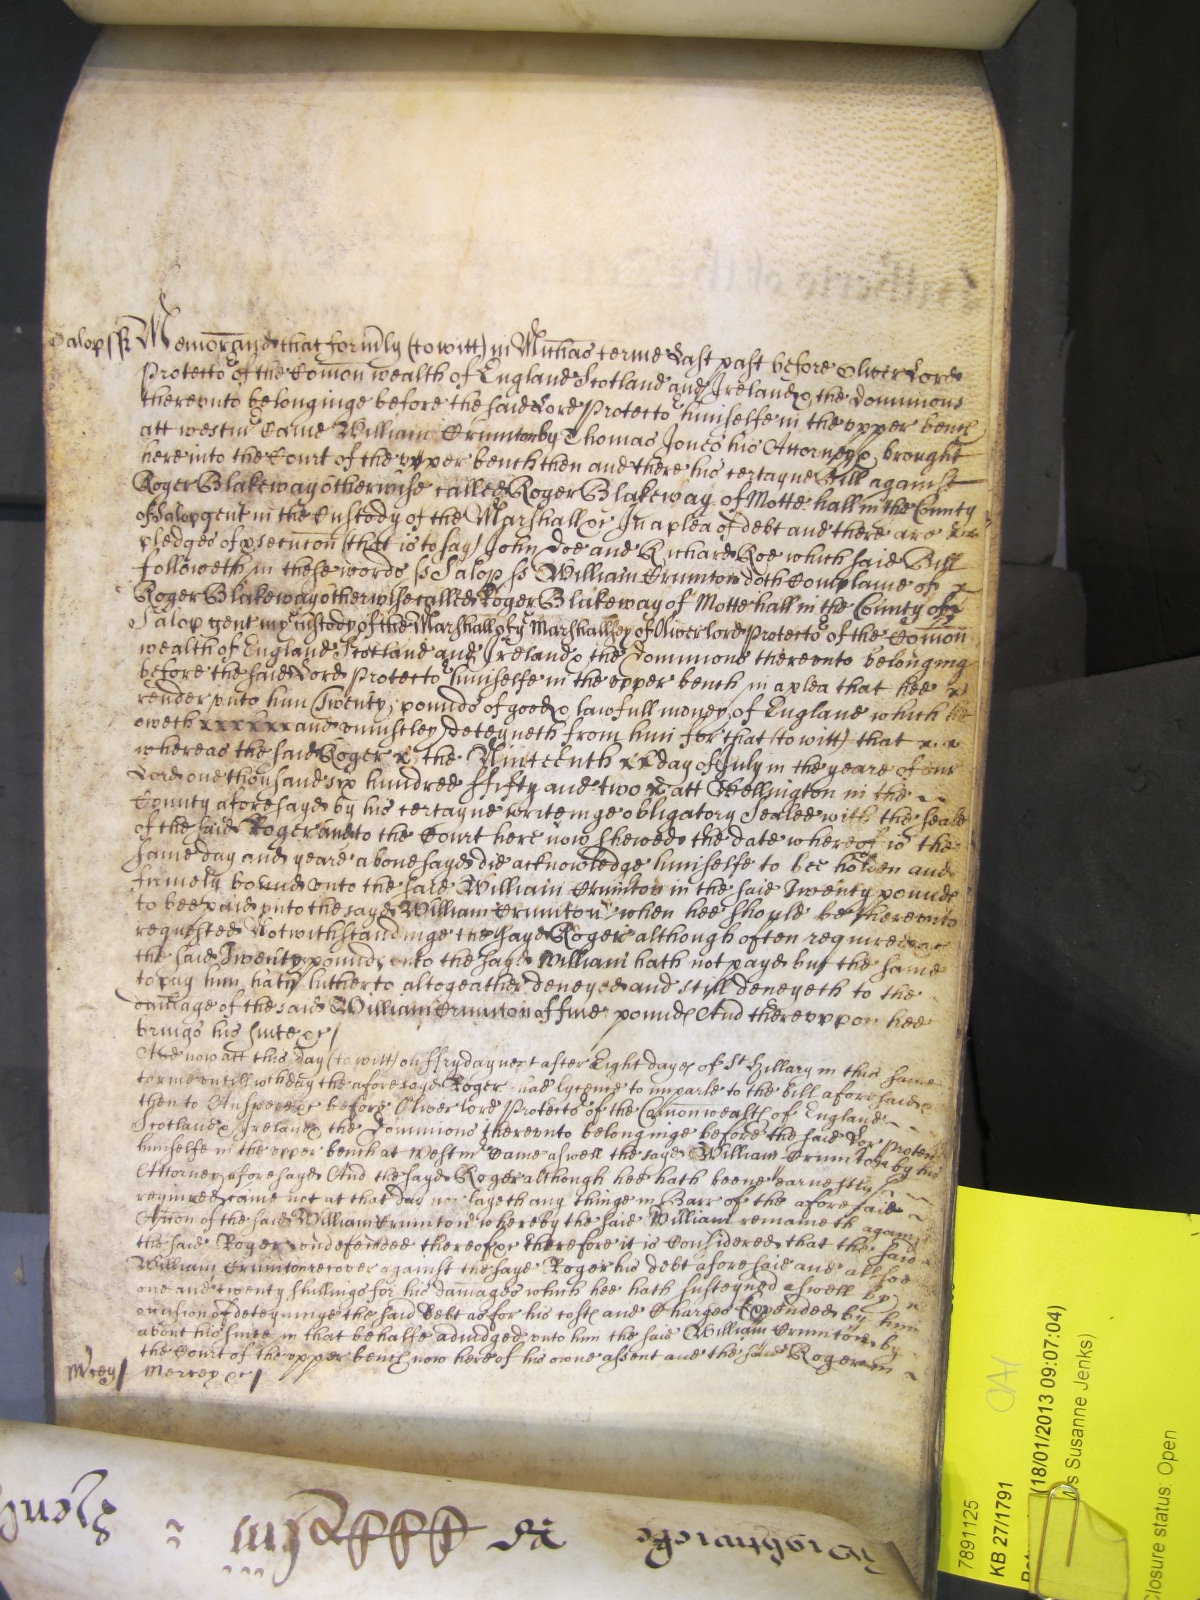 Salop ss Memorand that formly (to witt) in Michas terme Last past before Oliver Lord
Protector of the Comon wealth of England Scotland and Ireland & the dominions
thereunto belonginge before the said Lord Protector himselfe in the upper bench
att westm Came William Ermnton by Thomas Jones his Attorney & brought
here into the Court of the upper bench then and there his certayne Bill against
Roger Blakeway otherwise called Roger Blakeway of Motte hall in the County
of Salop gent in the Custody of the Marshall &c In a plea of debt and there are
pledges of psecucon (that is to say) John Doe and Richard Roe which said Bill
followeth in these words ss Salop ss William Ermnton doth Complaine of
Roger Blakeway otherwise called Roger Blakeway of Motte hall in the County of
Salop gent in custody of the Marshall of Marshallsey of Oliver lord Protector of the Comon
wealth of England Scotland and Ireland & the Dominions thereunto belonging
before the said Lord Protector himselfe in the upper bench in a plea that hee
render unto him Twenty pounds of good & lawfull money of England which hee
oweth and uniustley deteyneth from him for that (to witt) that
whereas the said Roger the Ninteenth day of July in the yeare of our
Lord one thousand six hundred fifty and two att Wellington in the
County aforesayd by his certayne writeinge obligatory Sealed with the seale
of the said Roger and to the Court here now shewed the date whereof is the
same day and yeare abovesayd did acknowledge himselfe to bee holden and
firmely bound unto the said William Ermnton in the said Twenty pounds
to bee paid unto the sayd William Ermnton when hee should be thereunto
requested Notwithstandinge the sayd Roger although often required
the said Twenty pounds unto the sayd William hath not payd but the same
to pay him hath hitherto altogeather denyed and still denyeth to the
damage of the said William Ermnton of five pounds And thereuppon hee
brings his suite &c
And now att this day (to witt) on ffryday next after Eight dayes of St Hillary in this same
terme untill which day the aforesayd Roger had lycense to imparle to the bill aforesaid &
then to Answere &c before Oliver lord Protector of the Comonwealth of England
Scotland & Ireland & the Dominions thereunto belonginge before the said Lord Protector
himselfe in the upper bench at westm Came aswell the sayd William Ermnton by his
Attorney aforesayd And the sayd Roger although hee hath beene earnestly
required came not at that day nor sayeth any thinge in Barr of the aforesaid
Accon of the said William Ermnton whereby the said William remaineth against
the said Roger undefended thereof &c therefore it is Considered that the said
William Ermnton recover against the sayd Roger his debt aforesaid and alsoe
one and twenty shillings for his damages which hee hath susteyned aswell by
occasion of deteyninge the said debt as for his costs and Charges Expended by him
about his suite in that behalfe adiudged unto him the said William Ermnton by
the Court of the upper bench now here of his owne assent and the said Roger in
Mcey Mercy &c
7891125
KB 27/1791
(18/01/2013 09:07:04)
s Susanne Jenks)
Closure status: Open